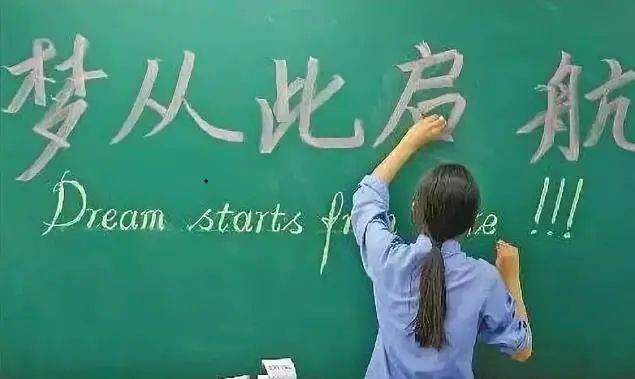 梦从此启航
Dream starts !!!